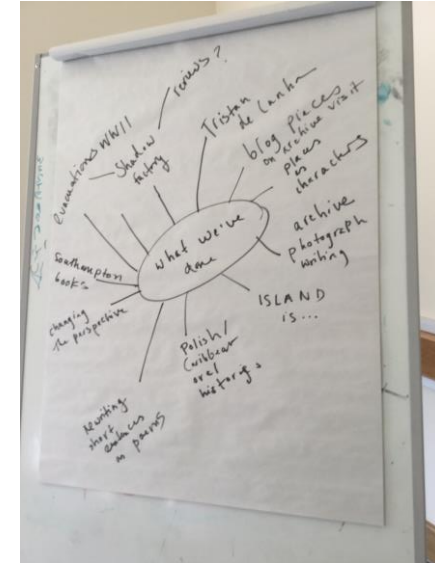 what we've
done
reviews?
evacuations WWII
Shadow
factory
Tristan
de Cunha
blog pieces
on archive visit
places
as
characters
archive
photograph
writing
ISLAND
is...
Polish/
Caribbean
oral
histories
Rewriting
short
as poems
changing
the perspective
Southampton
books